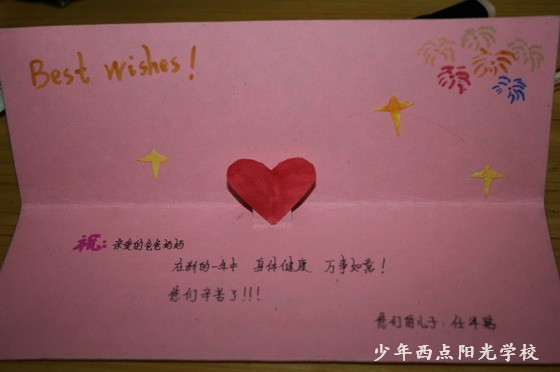 Best wishes!
祝：亲爱的爸爸妈妈
在新的一年中 身体健康 万事如意！
您们辛苦了！！！
您们的儿子：任泽
少年西点阳光学校